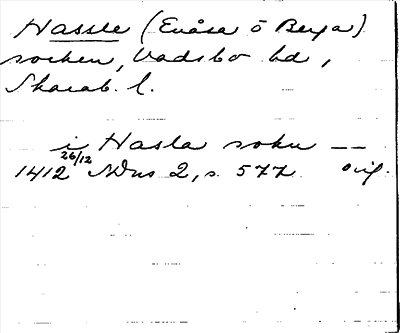 Hassle (Enåsa o Berga)
socken, Vadsbo hd,
Skarab. l.
i Hasla sokn --
1412 26/12 SDns 2, s. 577 orig.